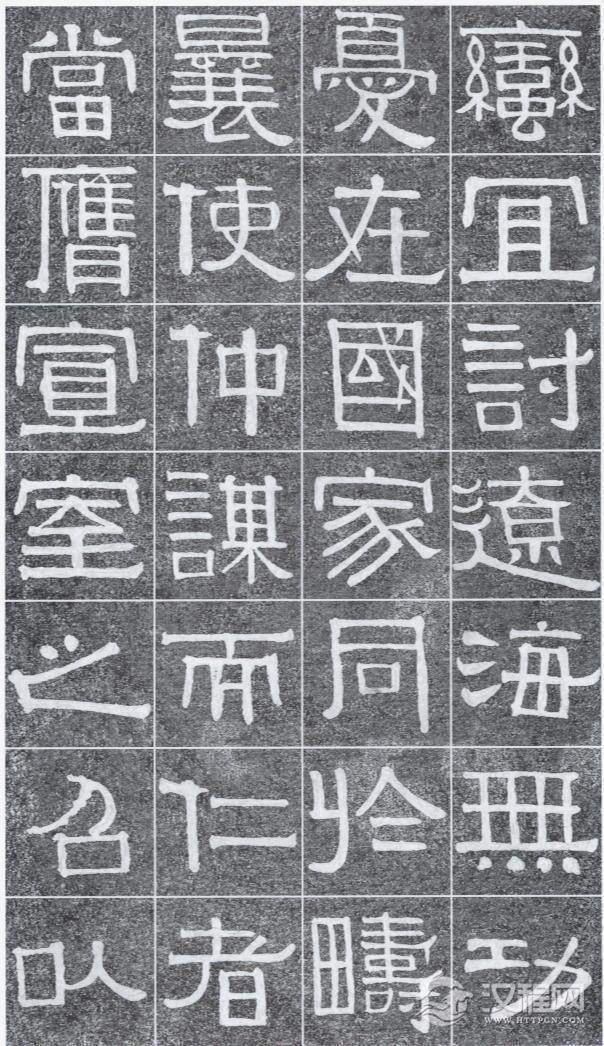 蠻宜討遼海無功
憂在國家同於疇
曩使仲謀而仁者
當膺宣室之召以
汉程网
WWW.HTTPCN.COM